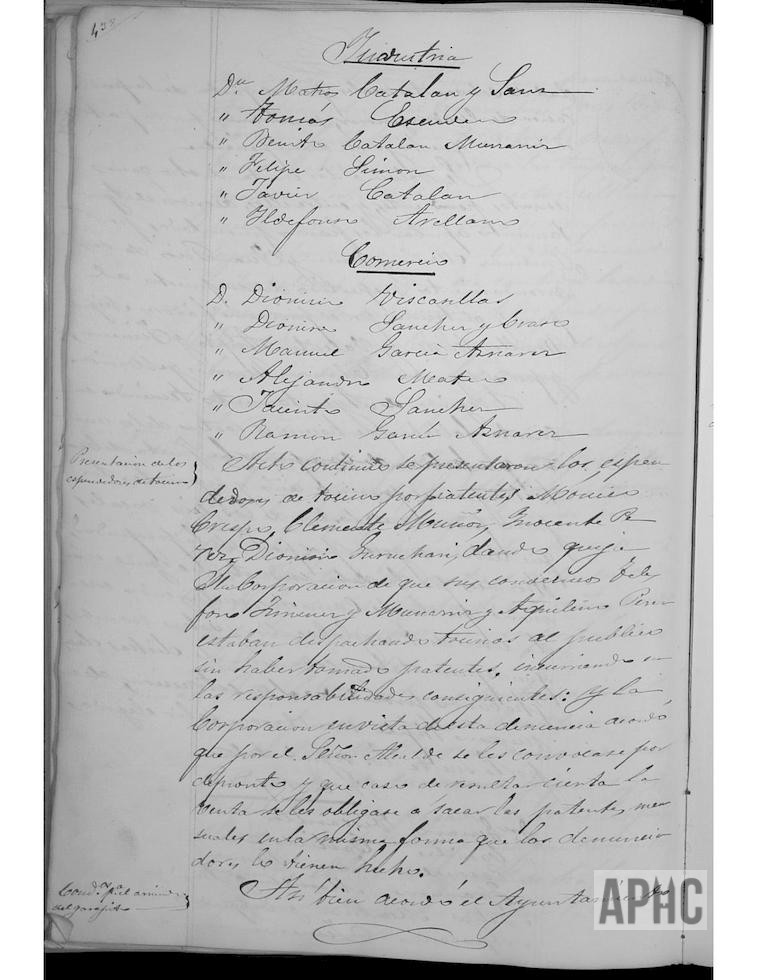 438
Industria
Dn Mateo Catalan y Sanz
" Tomás Escudero
" Benito Catalan Munarriz
" Felipe Simon
" Javier Catalan
" Ildefonso Arellano
Comercio
D. Dionisio Viscasillas
" Dionisio Sanchez y Craso
" Manuel Garcia Aznarez
" Alejandro Mateo
" Jacinto Sanchez
" Ramon García Aznarez
Presentacion de los
espendedores de tocino
Acto continuo se presentaron los espen
dedores de tocino por patentes Mónico
Crespo, Clemente Muñoz, Inocente Pe
rez, Dionisio Guruchari, dando queja
á la Corporacion de que sus convecinos Ildefon
fonso Jimenez y Munarriz y Aquilino Perez
estaban despachando tocinos al publico
sin haber tomado patentes, incurriendo en
las responsabilidades consiguientes: y la
Corporacion en vista de esta denuncia acordó
que por el Señor Alcalde se les convocase por
de pronto y que caso de resultar cierta la
venta se les obligase a sacar las patentes men
suales en la misma forma que los denuncia
dores lo tienen hecho.
Cond.s pa el arriendo
del garapito
Asi bien acordó el Ayuntamiento
APHC